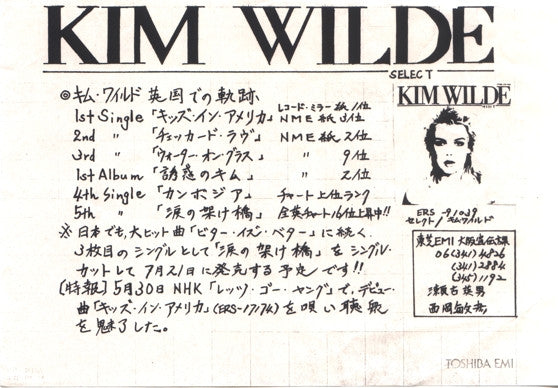 KIM WILDE
SELECT
◎キム・ワイルド 英国での軌跡
レコード・ミラー紙 1位
1st Single「キッズ・イン・アメリカ」NME紙 3位
2nd 〃 「チェッカード・ラヴ」NME紙 2位
3rd 〃 「ウォーター・オン・グラス」 〃 9位
1st Album「誘惑のキム」 〃 2位
4th Single「カンボジア」チャート上位ランク
5th 〃 「涙の架け橋」全英チャート16位上昇中!!
※日本でも、大ヒット曲「ビター・イズ・ベター」に続く、
3枚目のシングルとして「涙の架け橋」をシングル・
カットして7月21に発売する予定です!!
〔特報〕5月30日NHK「レッツ・ゴー・ヤング」で、デビュー
曲「キッズ・イン・アメリカ」(ERS-17174)を唄い聴衆
を魅了した。
KIM WILDE
ERS-91039
セレクト/キムワイルド
東芝EMI大阪宣伝課
06(341)4826
(341)2884
(345)1192
瀬古英男
西岡
TOSHIBA EMI